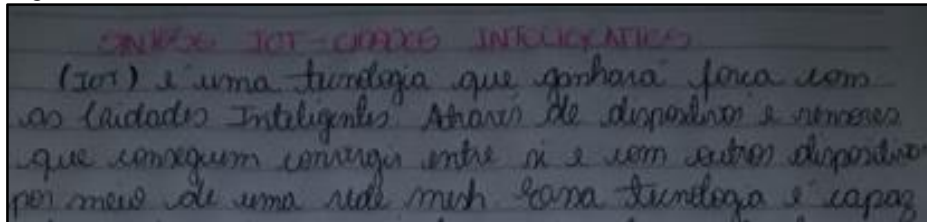 SINTESE IOT - CIDADES INTELIGENTES
(IOT) é uma tecnologia que ganhará força com
as Cidades Inteligentes Através de dispositivos e sensores
que conseguem convergir entre si e com outros dispositivos
por meio de uma rede mesh Essa tecnologia é capaz